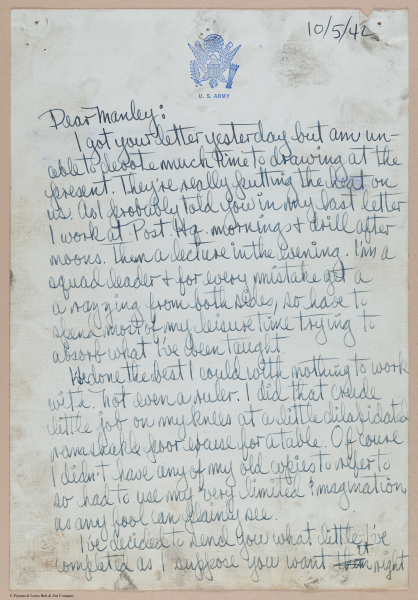 10/5/42
U.S. ARMY
Dear Manley:
I got your letter yesterday but am un-
able to devote much time to drawing at the
present. They're really putting the heat on
us. As I probably told you in my last letter
I work at Post Hq. mornings & drill after-
noons. Then a lecture in the evening. I'm a
squad leader & for every mistake get a
a razzing from both sides, so have to
spend most of my leisure time trying to
absorb what I've been taught
I've done the best I could with nothing to work
with. Not even a ruler. I did that crude
little job on my knees at a little dilapidated
ramshackle poor excuse for a table. Of course
I didn't have any of my old copies to refer to
so had to use my very limited imagination
as any fool can plainly see.
I've decided to send you what little I've
completed as I suppose you want it right
© Potomac & Lewis Bolt & Nut Company